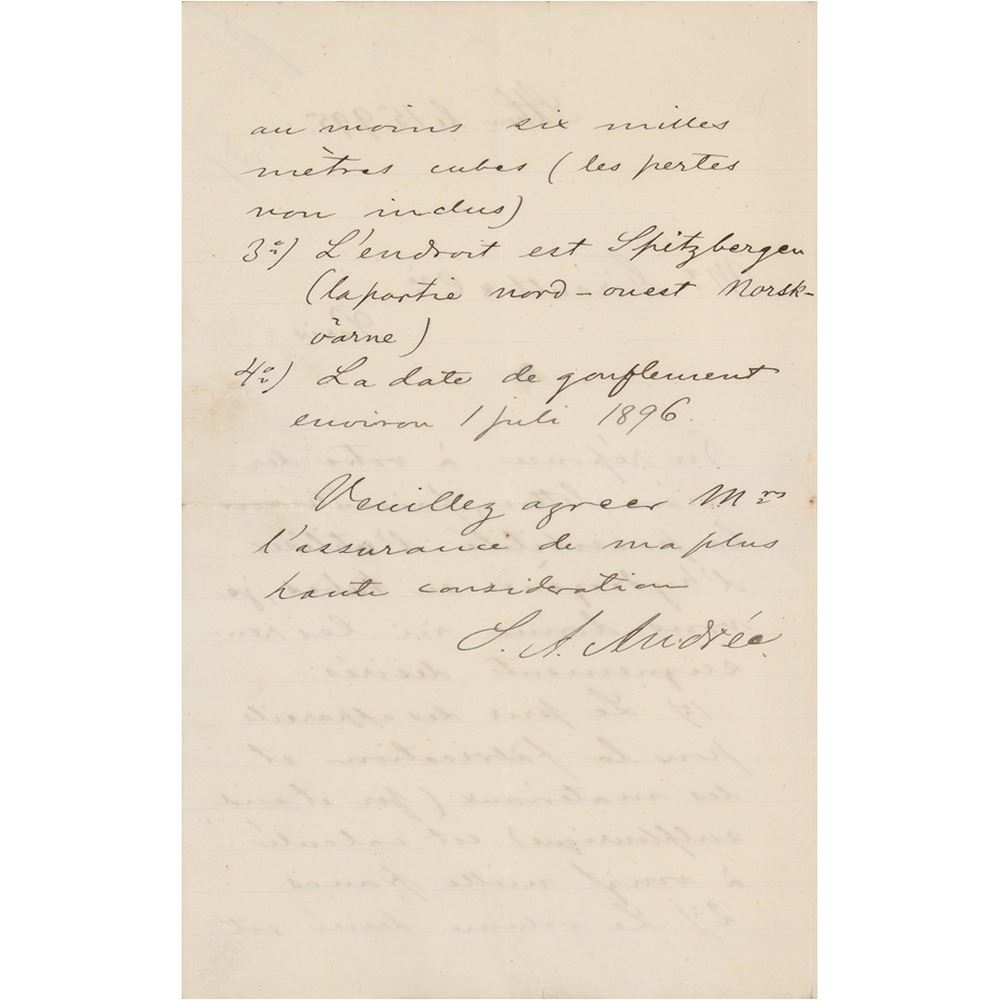 au moins six milles
mètres cubes (les pertes
non inclus)
3o) L'endroit est Spitzbergen
(la partie nord-ouest Norsk-
öarne)
4o) La date de gonflement
environ 1 juli 1896.
Veuillez agreer Mrs
l'assurance de ma plus
haute consideration
S. A. Andrée.